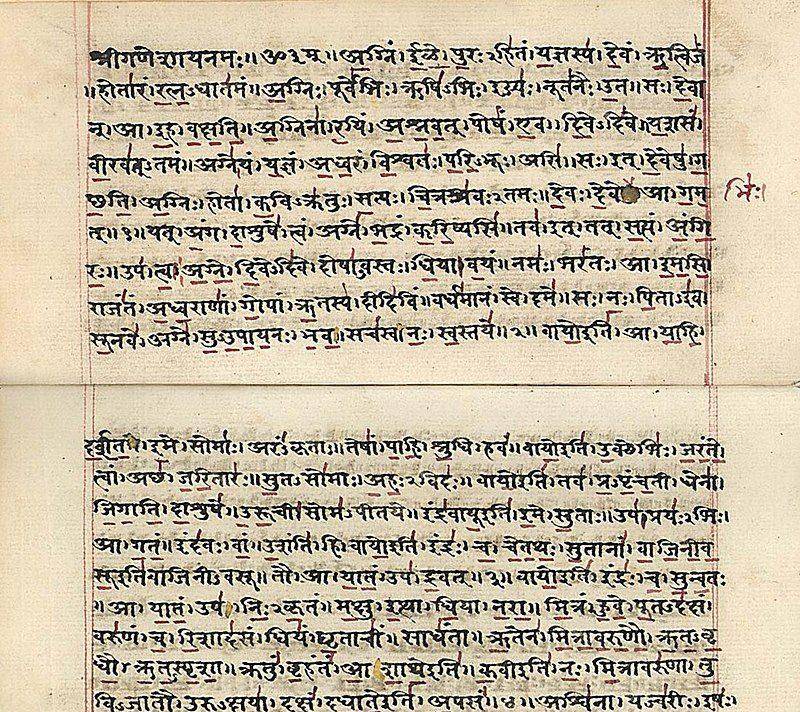 श्रीगणेशायनमः॥ॐ३म्॥ अग्निं। ईळे। पुरःऽहितं। यज्ञस्य। देवं। ऋत्विजं
॥होतारं। रत्नऽधातमं॥ अग्निः। पूर्वेभिः। ऋषिऽभिः। ईड्यः। नूतनैः। उत॥ सः। देवा
न्। आ। इह। वक्षति॥ अग्निना। रयिं। अश्नवत्। पोषं। एव। दिवेऽदिवे॥ यशसं।
वीरवत्ऽतमं॥ अग्ने। यं। यज्ञं। अध्वरं। विश्वतः। परिऽभूः। असि॥ सः। इत्। देवेषु। ग
छति॥ अग्निः। होता। कविऽक्रतुः। सत्यः। चित्रश्रवःऽतमः॥ देवः। देवे आ। गम
त्॥१॥ यत्। अंग। दाशुषे। त्वं। अग्ने। भद्रं। करिष्यसि॥ तव। इत्। तत्। सत्यं। अंगि
रः॥ उप। त्वा। अग्ने। दिवेऽदिवे। दोषाऽवस्तः। धिया। वयं॥ नमः। भरंतः। आ। इमसि॥
राजंतं। अध्वराणां। गोपां। ऋतस्य। दीदिविं॥ वर्धमानं। स्वे। दमे॥ सः। नः। पिताऽइव।
सूनवे। अग्ने। सुऽउपायनः। भव॥ सचस्व। नः। स्वस्तये॥२॥ वायोइति। आ। याहि।
दर्शत। इमे। सोमाः। अरंऽकृताः॥ तेषां। पाहि। श्रुधि। हवं॥ वायोइति। उक्थेभिः। जरंते।
त्वां। अछ। जरितारः॥ सुतऽसोमाः। अहःऽविदः॥ वायोइति। तव। प्रऽपृंचती। धेना।
जिगाति। दाशुषे॥ उरूची। सोमऽपीतये॥ इंद्रवायूइति। इमे। सुताः। उप। प्रयःऽभिः।
आ। गतं॥ इंदवः। वां। उशंति। हि॥ वायोइति। इंद्रः। च। चेतथः। सुतानां। वाजिनीव
सूइतिवाजिनीऽवसू॥ तौ। आ। यातं। उप। द्रवत्॥३॥ वायोइति। इंद्रः। च। सुन्वतः
॥आ। यातं। उप। निःऽकृतं॥ मक्षु। इत्था। धिया। नरा॥ मित्रं। हुवे। पूतऽदक्षं।
वरुणं। च। रिशादसं॥ धियं। घृताचीं। साधंता॥ ऋतेन। मित्रावरुणौ। ऋतऽवृ
धौ। ऋतऽस्पृशा॥ क्रतुं। बृहंतं। आशाथेइति॥ कवीइति। नः। मित्रावरुणा। तु
विऽजातौ। उरुऽक्षया॥ दक्षं। दधातेइति। अपसं॥४॥ अश्विना। यज्वरीः। इषः।
भिः।